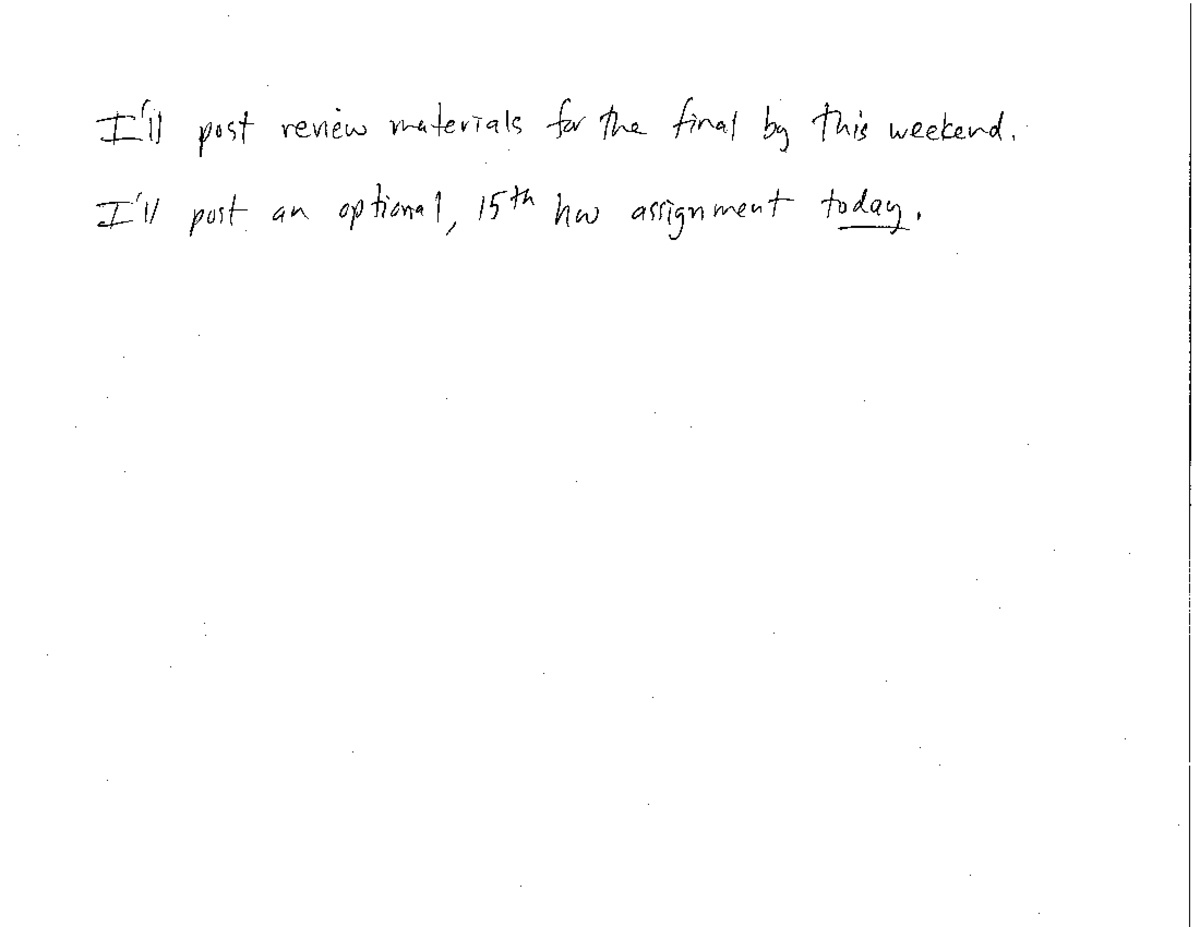 I'll post review materials for the final by this weekend.
I'll post an optional, 15th hw assignment today.